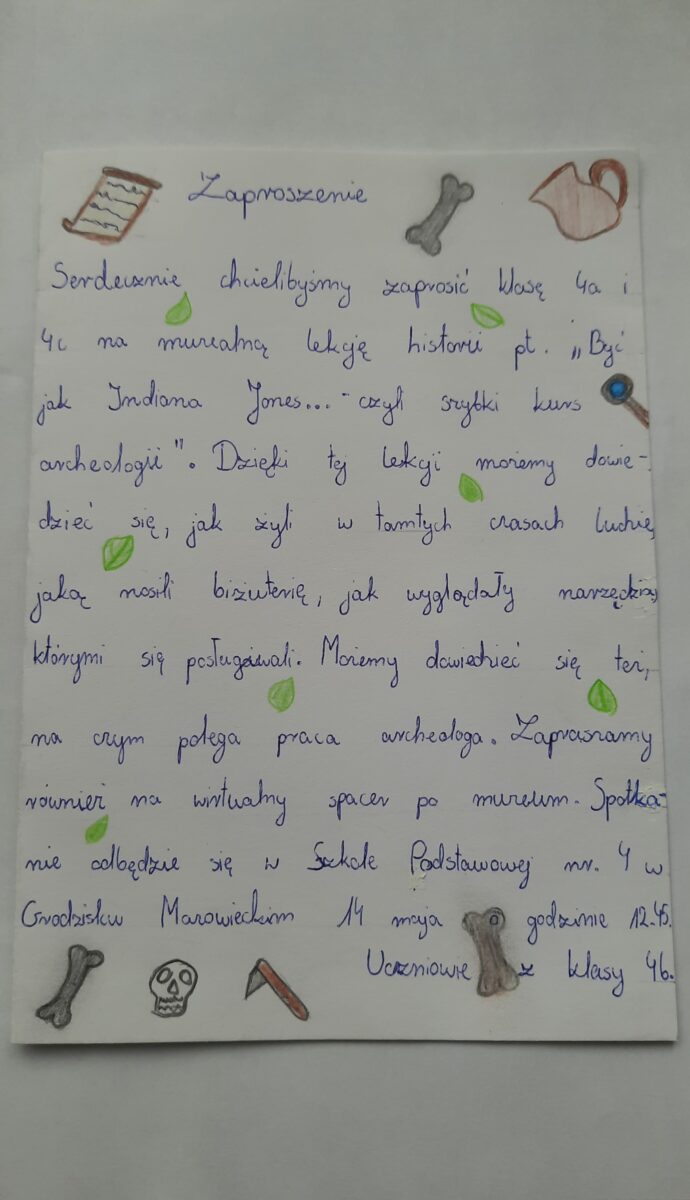 Zaproszenie
Serdecznie chcielibyśmy zaprosić klasę 4a i
4c na muzealną lekcję historii pt. „Być
jak Indiana Jones... - czyli szybki kurs
archeologii". Dzięki tej lekcji możemy dowie-
dzieć się, jak żyli w tamtych czasach ludzie,
jaką nosili biżuterię, jak wyglądały narzędzia,
którymi się posługiwali. Możemy dowiedzieć się też,
na czym polega praca archeologa. Zapraszamy
również na wirtualny spacer po muzeum. Spotka-
nie odbędzie się w Szkole Podstawowej nr. 4 w
Grodzisku Mazowieckim 14 maja o godzinie 12.45.
Uczniowie z klasy 4b.